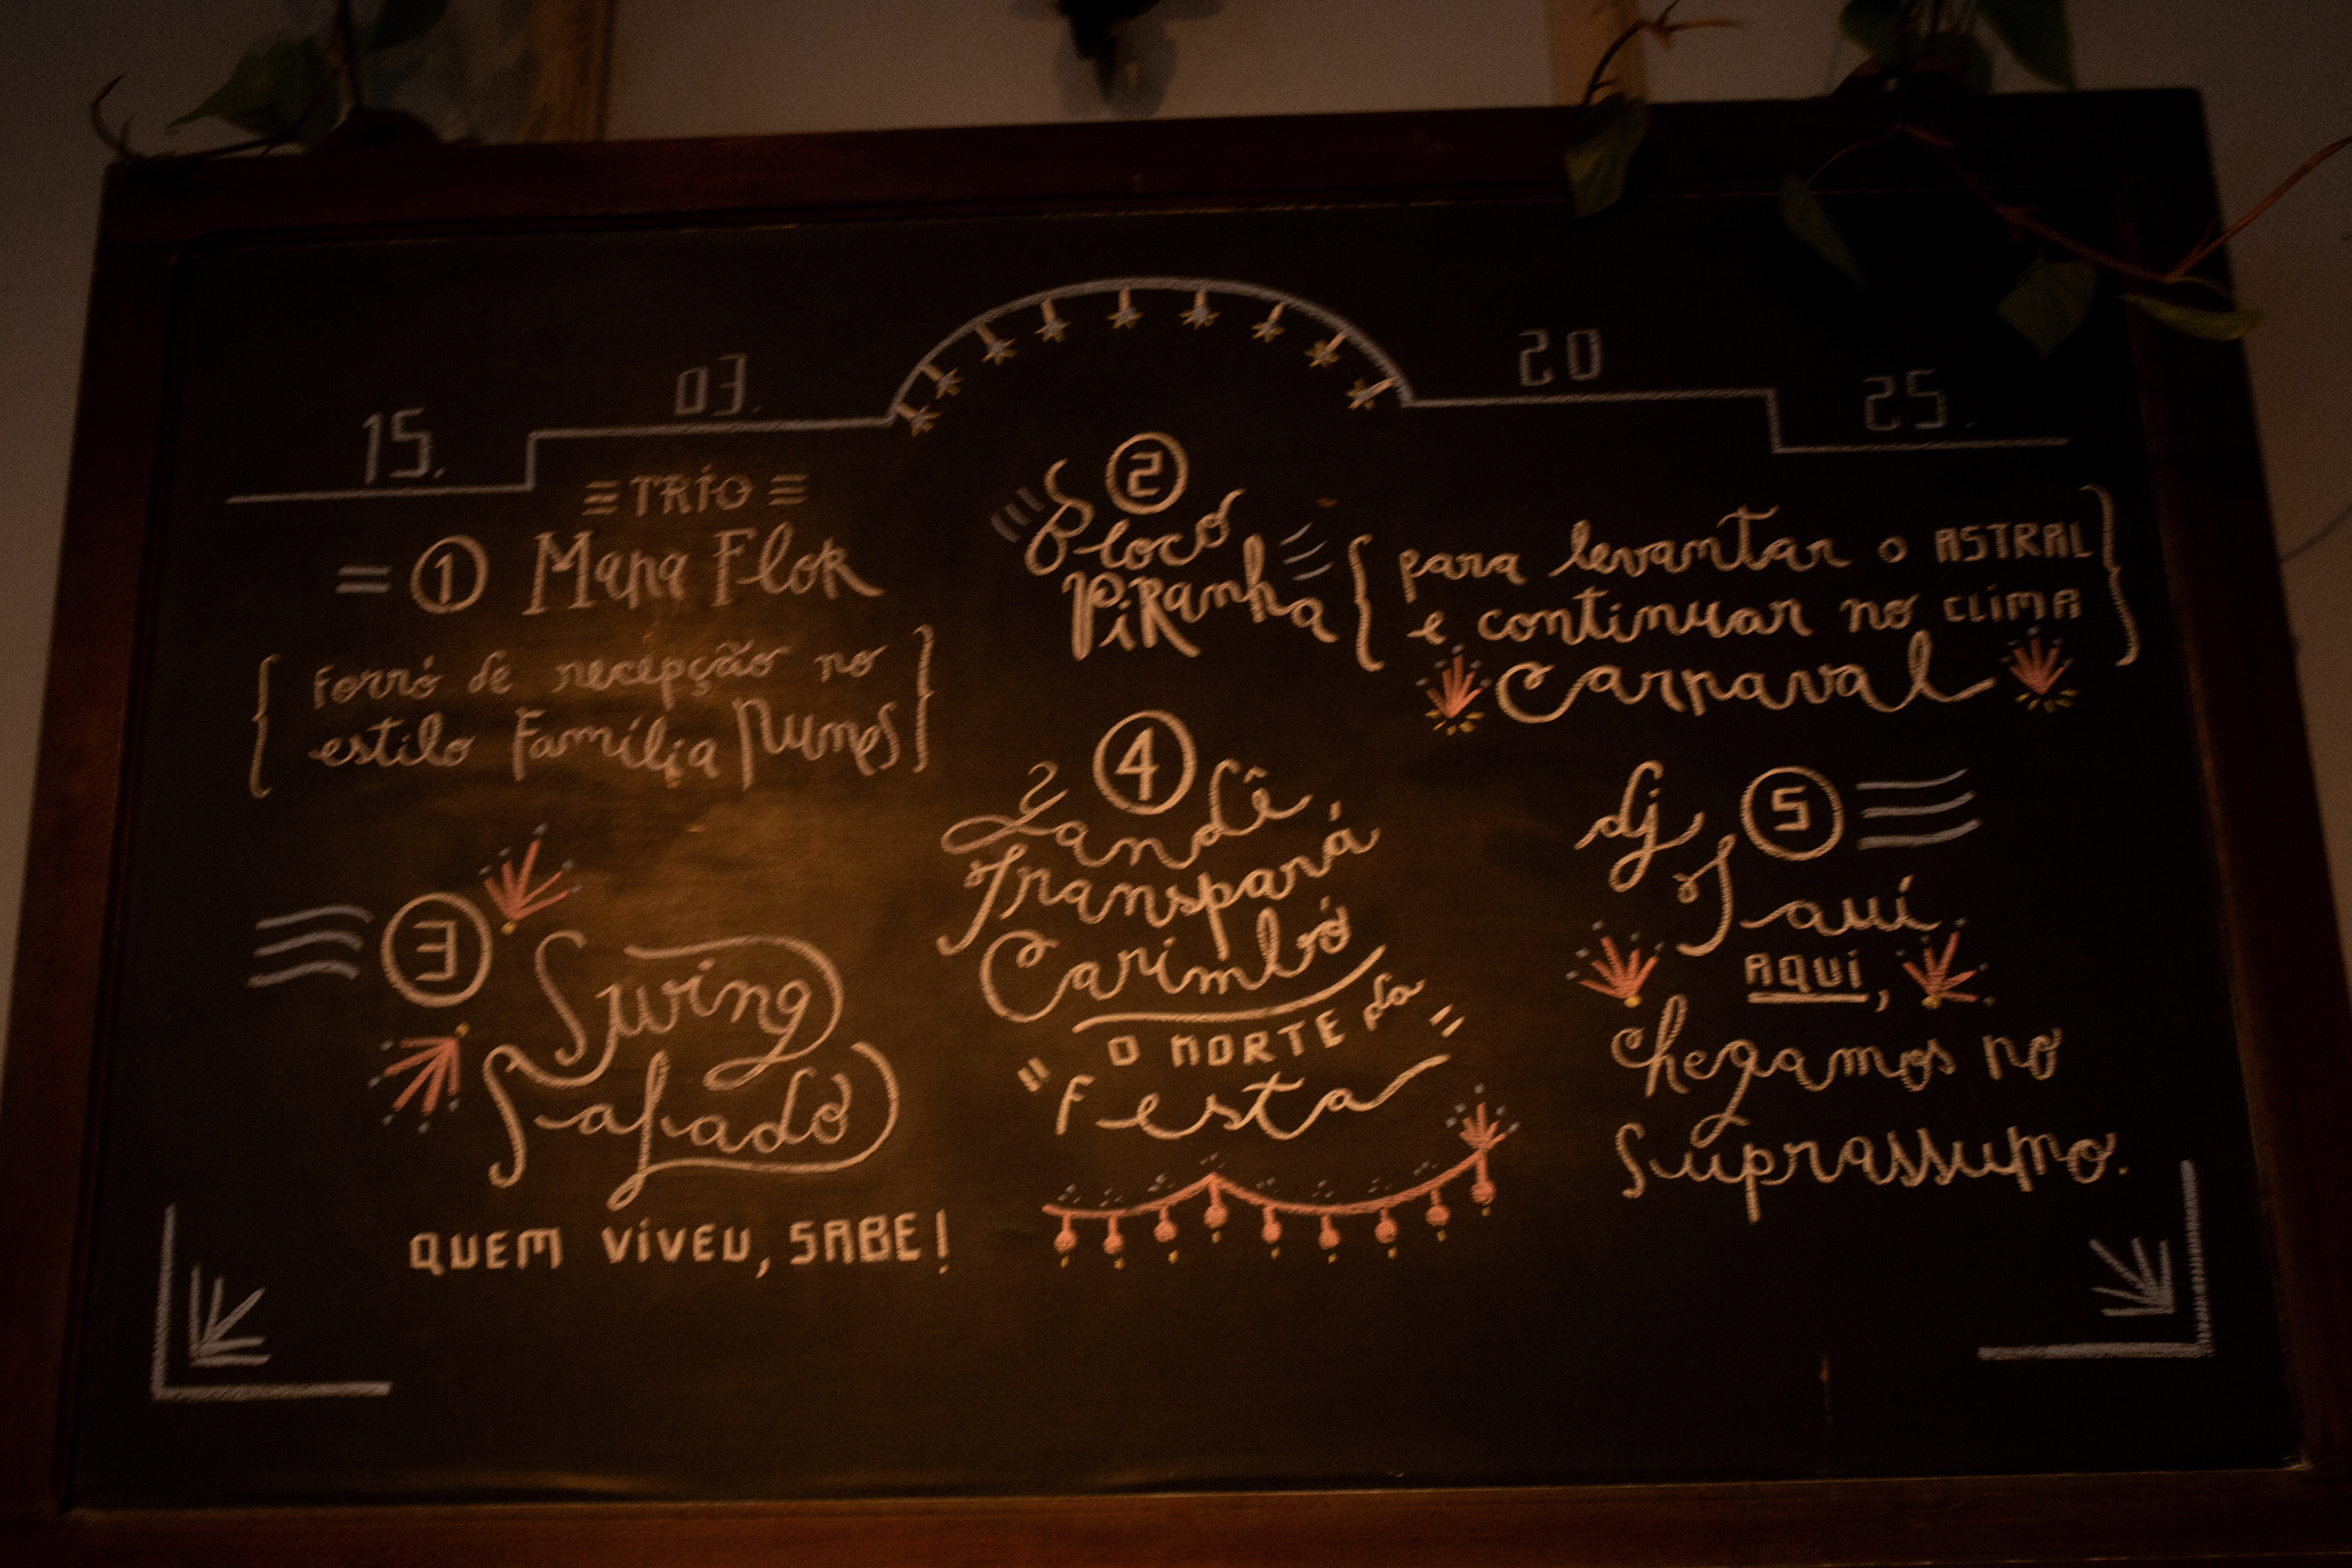 15.
03.
20
25.
TRIO
1 Mana Flor
{ Forró de recepção no
estilo Família Nunes }
2
Bloco
Piranha
{ para levantar o ASTRAL
e continuar no CLIMA }
Carnaval
3
Swing
Safado
QUEM VIVEU, SABE!
4
Zandê
Transpará
Carimbó
O NORTE da
"Festa"
dj 5
Tauí
AQUI,
Chegamos no
Suprassumo.